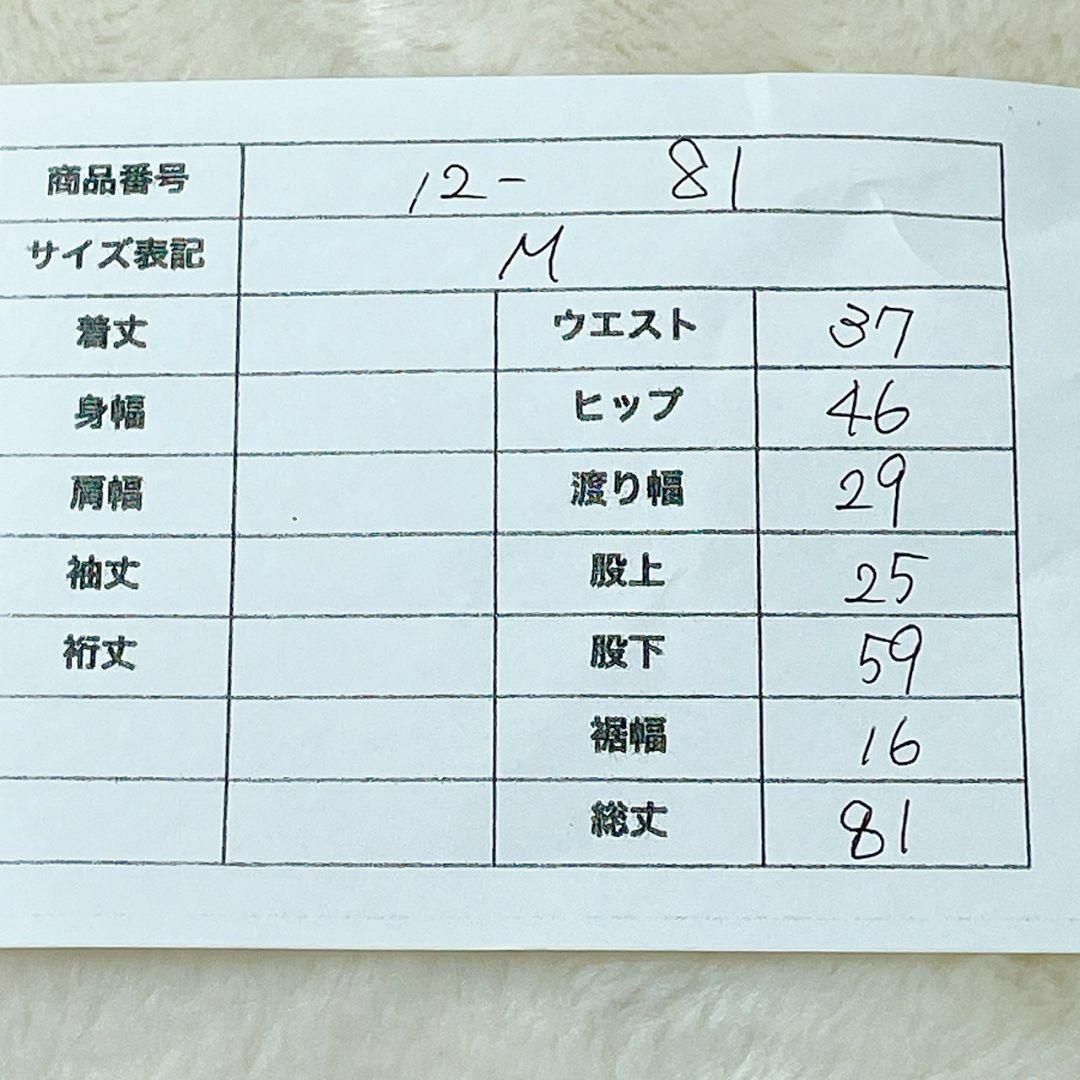 商品番号 12- 81
サイズ表記 M
着丈 ウエスト 37
身幅 ヒップ 46
肩幅 渡り幅 29
袖丈 股上 25
裄丈 股下 59
裾幅 16
総丈 81